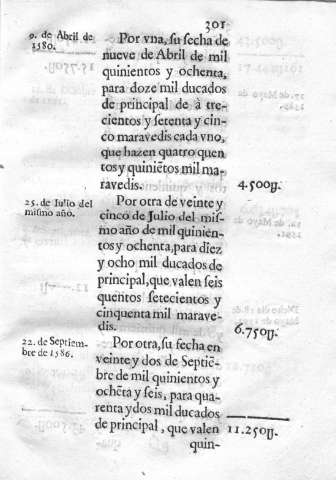 301
9. de Abril de
1580.
Por vna, su fecha de
nueve de Abril de mil
quinientos y ochenta,
para doze mil ducados
de principal de à tre-
cientos y setenta y cin-
co maravedis cada vno,
que hazen quatro quen
tos y quiniẽtos mil ma-
ravedis.
4.500ų.
25. de Julio del
mismo año.
Por otra de veinte y
cinco de Julio del mis-
mo año de mil quinien-
tos y ochenta, para diez
y ocho mil ducados de
principal, que valen seis
quentos setecientos y
cinquenta mil marave-
dis.
6.750ų.
22. de Septiem-
bre de 1586.
Por otra, su fecha en
veinte y dos de Septiẽ-
bre de mil quinientos y
ochẽta y seis, para qua-
renta y dos mil ducados
de principal, que valen
11.250ų.
quin-